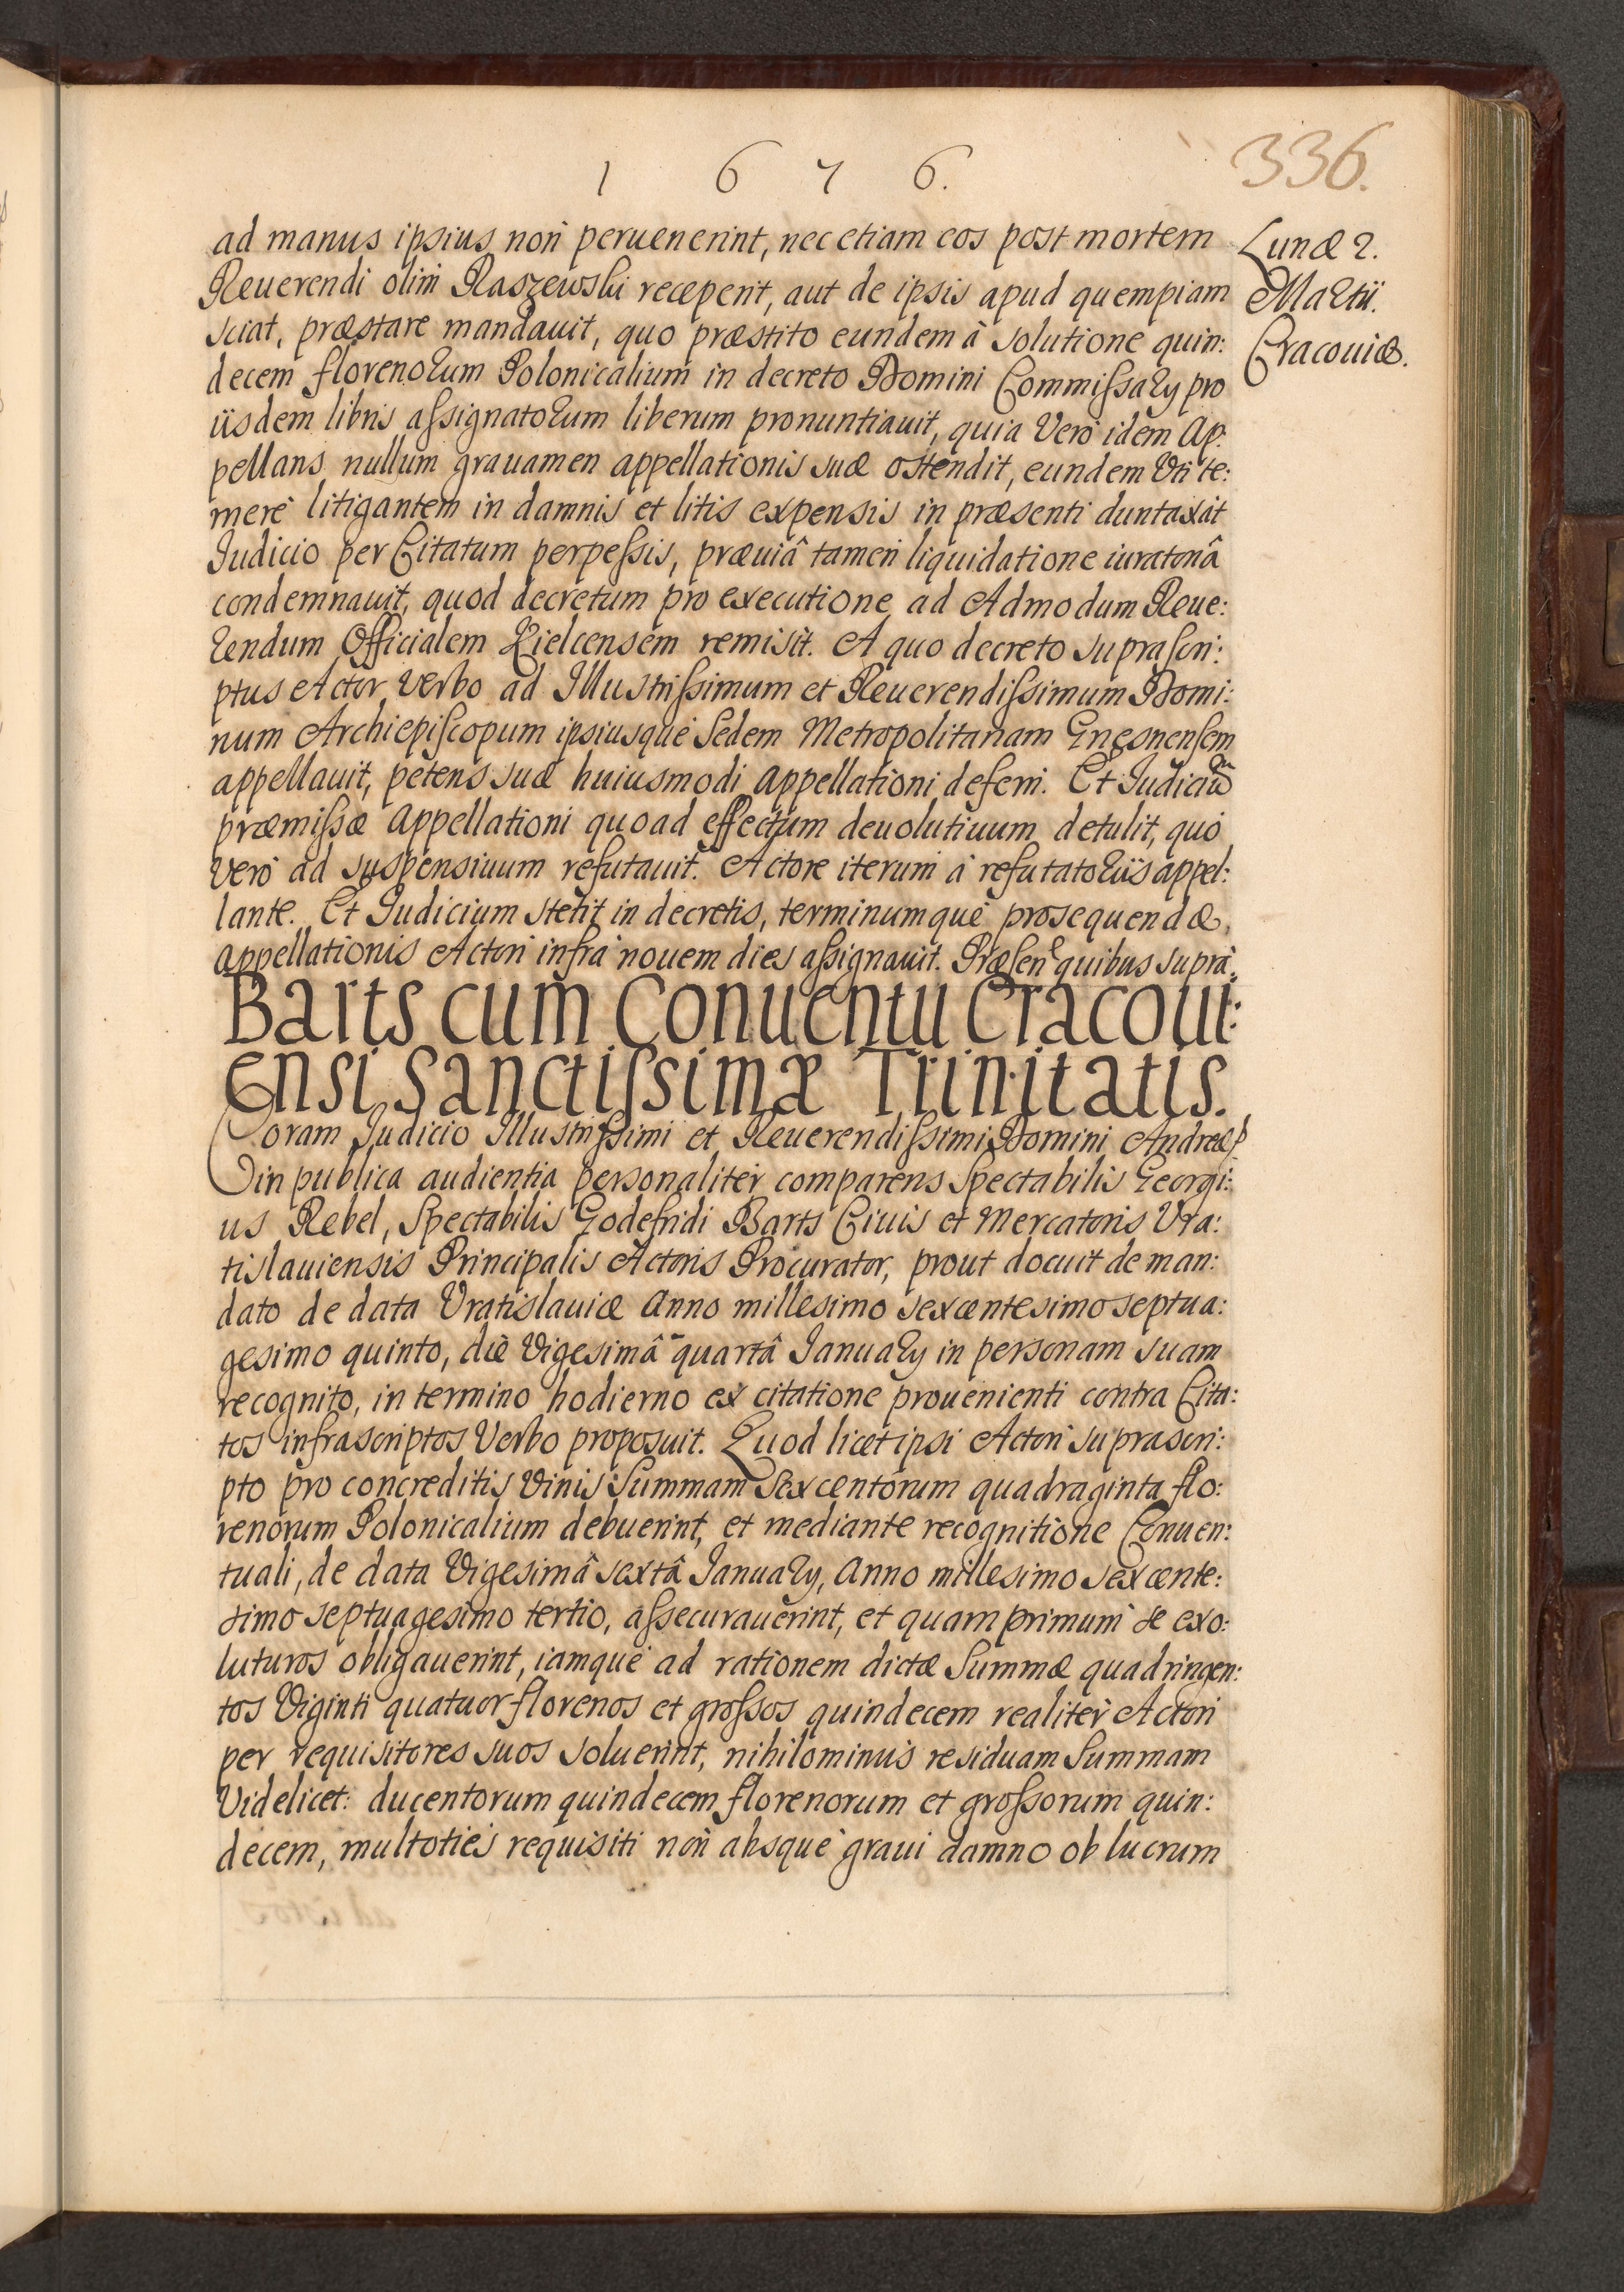 1 6 7 6.
336.
Lunæ 2.
Martii.
Cracouiæ.
ad manus ipsius non peruenerint, nec etiam eos post mortem
Reuerendi olim Raszewski receperit, aut de ipsis apud quempiam
sciat, præstare mandauit, quo præstito eundem à solutione quin:
decem florenorum Polonicalium in decreto Domini Commissary pro
iisdem libris assignatorum liberum pronuntiauit, quia Verò idem Ap:
pellans nullum grauamen appellationis suæ ostendit, eundem Uti te:
merè litigantem in damnis et litis expensis in præsenti duntaxat
Iudicio per Citatum perpessis, præuiâ tamen liquidatione iuratoriâ
condemnauit, quod decretum pro executione ad Admodum Reue:
rendum Officialem Kielcensem remisit. A quo decreto suprascri:
ptus Actor Verbo ad Illustrissimum et Reuerendissimum Domi:
num Archiepiscopum ipsiusque Sedem Metropolitanam Gnesnensem
appellauit, petens suæ huiusmodi appellationi deferri. Et Iudiciũ
præmissæ Appellationi quoad effectum deuolutiuum detulit, quò
Verò ad suspensiuum refutauit. Actore iterum à refutatoriis appel:
lante. Et Iudicium stetit in decretis, terminumque prosequendæ
appellationis Actori infra nouem dies assignauit. Præsen̄ quibus suprà.
Barts cum Conuentu Cracoui:
ensi Sanctissimæ Trinitatis.
Coram Iudicio Illustrissimi et Reuerendissimi Domini Andreæ p
in publica audientia personaliter comparens Spectabilis Georgi:
us Rebel, Spectabilis Godefridi Barts Ciuis et Mercatoris Vra:
tislauiensis Principalis Actoris Procurator, prout docuit de man:
dato de data Vratislauiæ Anno millesimo sexcentesimo septua:
gesimo quinto, die Vigesimâ quartâ Ianuary in personam suam
recognito, in termino hodierno ex citatione prouenienti contra Cita:
tos infrascriptos Verbo proposuit. Quod licet ipsi Actori suprascri:
pto pro concreditis Vinis Summam Sexcentorum quadraginta flo:
renorum Polonicalium debuerint, et mediante recognitione Conuen:
tuali, de data Vigesimâ sextâ Ianuary, Anno millesimo sexcente:
simo septuagesimo tertio, assecurauerint, et quam primum se exo:
luturos obligauerint, iamque ad rationem dictæ Summæ quadringen:
tos Viginti quatuor florenos et grossos quindecem realiter Actori
per requisitores suos soluerint, nihilominus residuam Summam
Videlicet: ducentorum quindecem florenorum et grossorum quin:
decem, multoties requisiti non absque graui damno ob lucrum